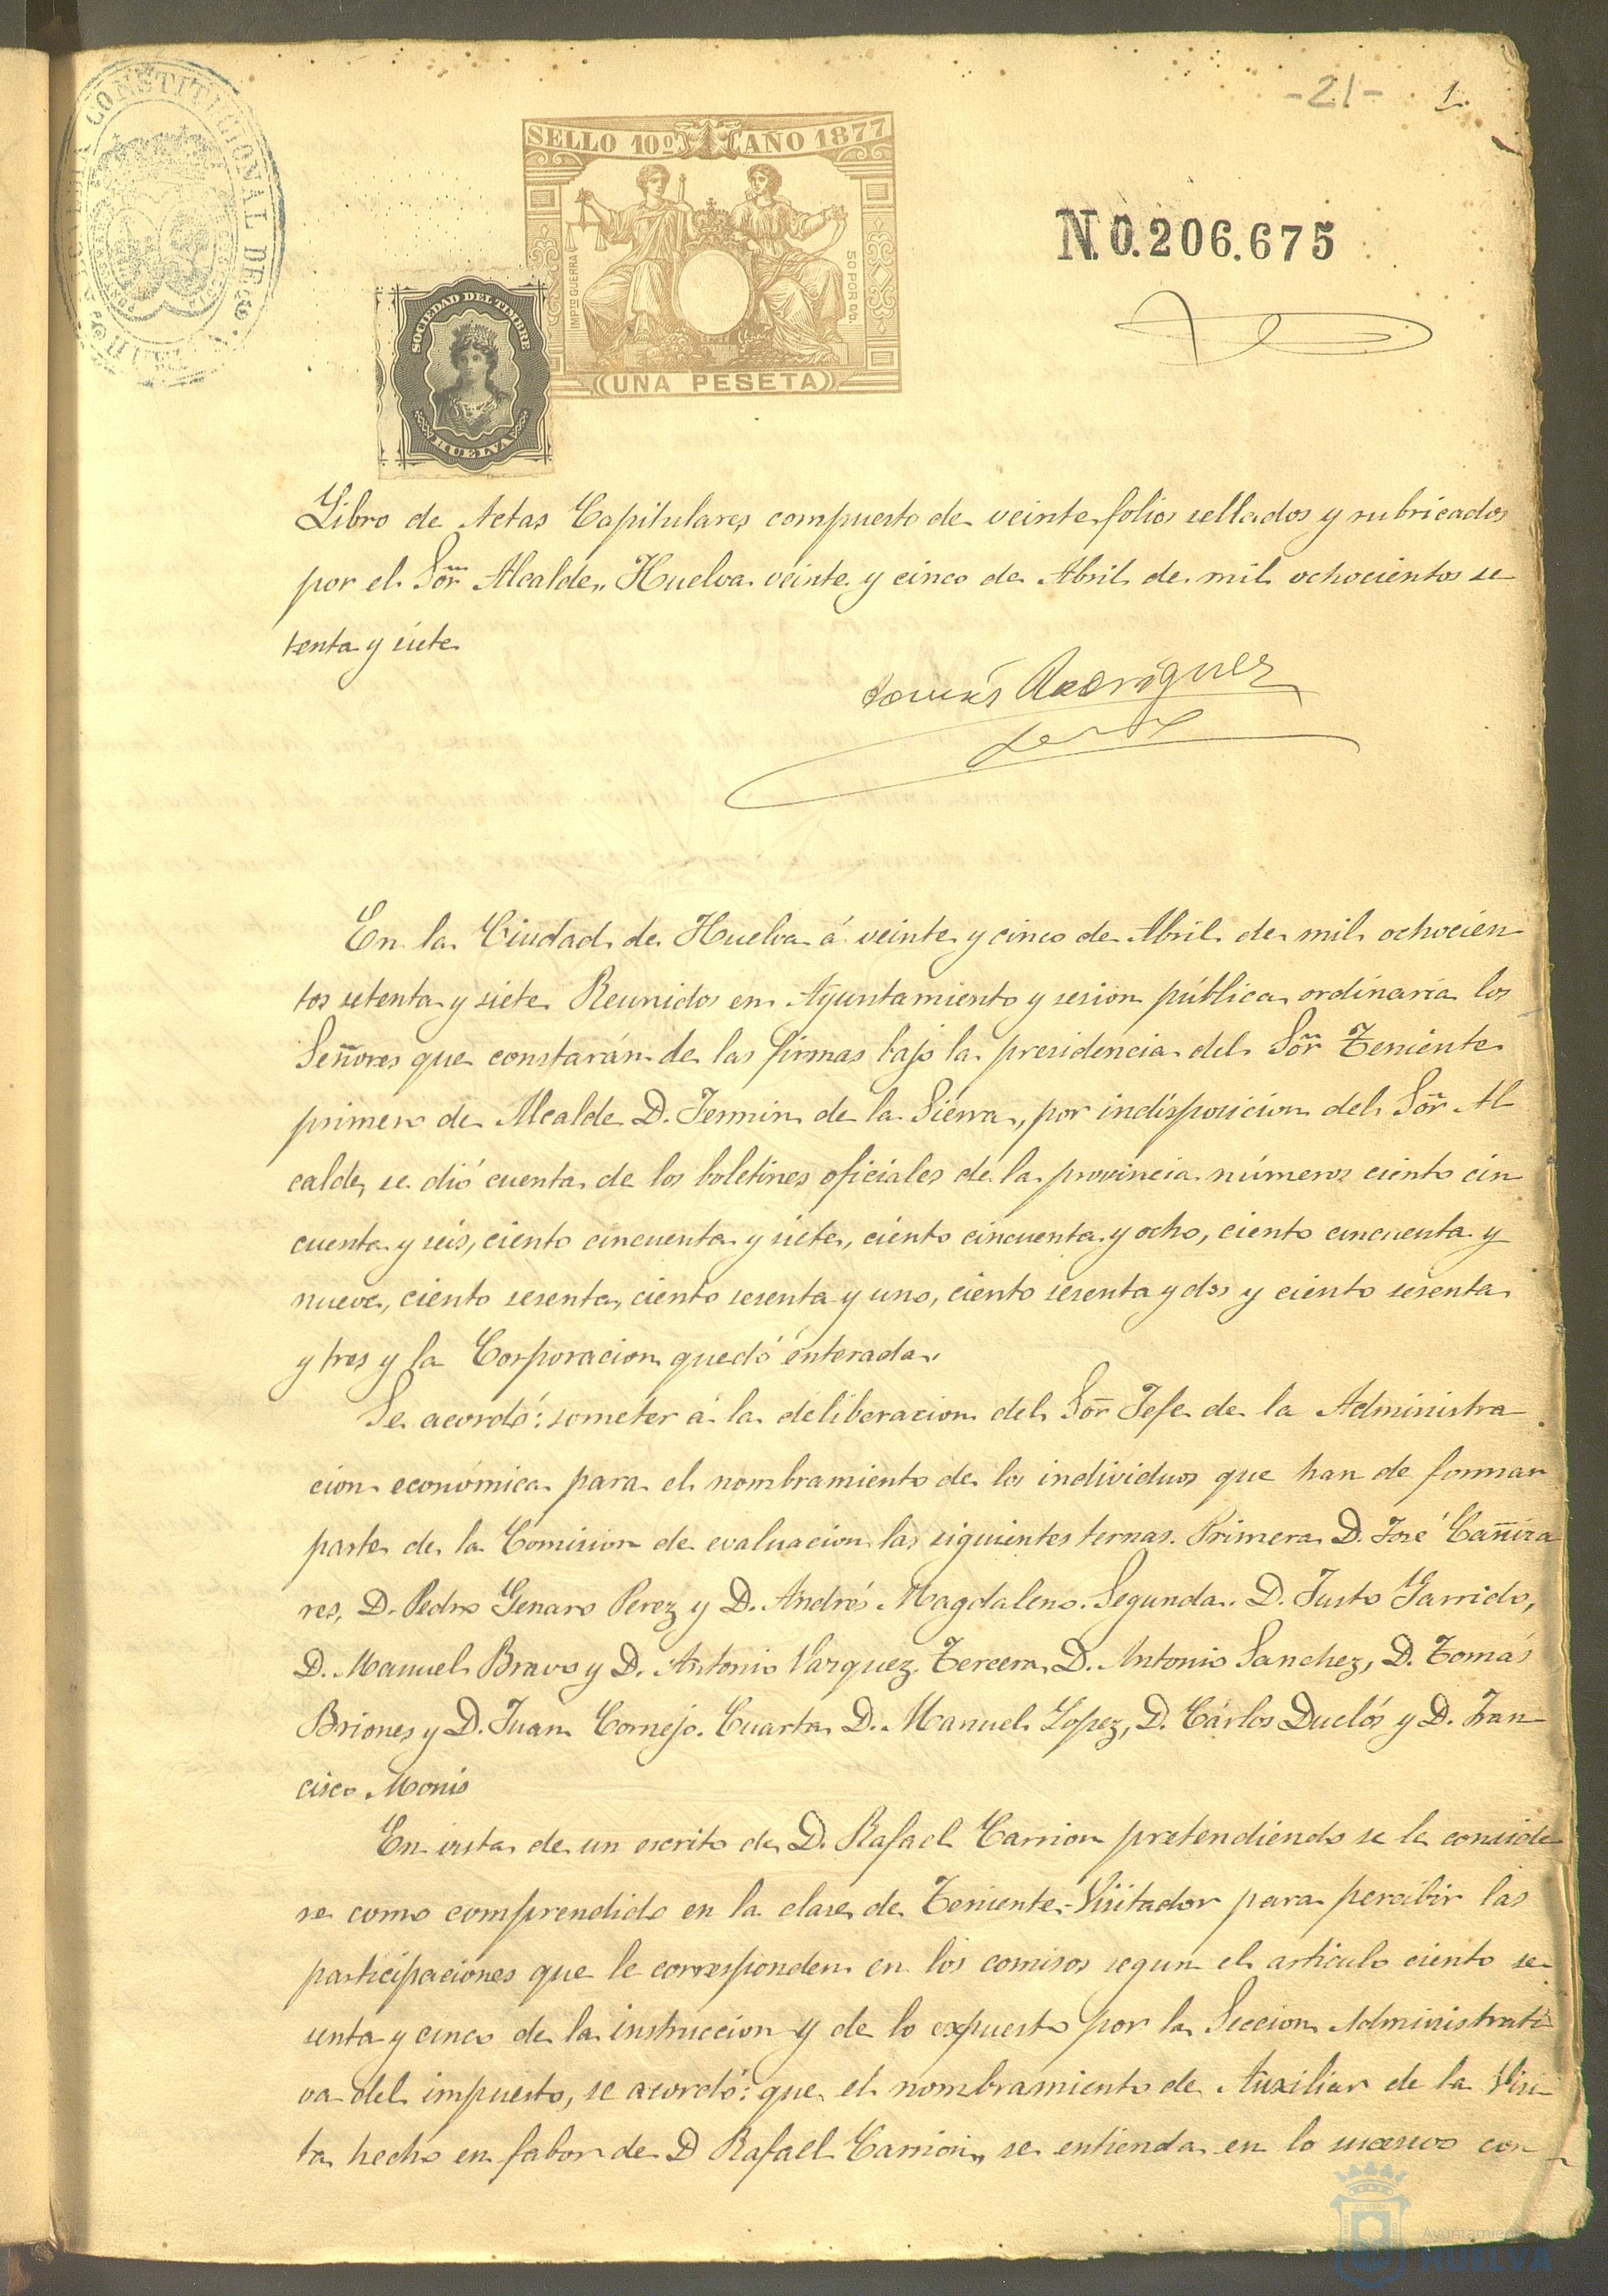 -21- 1.
CONSTITUCIONAL DE
SELLO 10º AÑO 1877
IMPTO GUERRA
50 POR 0/0.
(UNA PESETA)
N.0.206.675
SOCIEDAD DEL TIMBRE
HUELVA
Libro de Actas Capitulares, compuesto de veinte folios sellados y rubricados
por el Sor Alcalde,, Huelva veinte y cinco de Abril de mil ochocientos se
tenta y siete
Tomás Rodriguez
En la Ciudad de Huelva á veinte y cinco de Abril de mil ochocien
tos setenta y siete Reunidos en Ayuntamiento y sesion pública ordinaria los
Señores que constarán de las firmas bajo la presidencia del Sor Teniente
primero de Alcalde D. Fermin de la Sierra, por indisposicion del Sor Al
calde, se dió cuenta de los boletines oficiales de la provincia números ciento cin
cuenta y seis, ciento cincuenta y siete, ciento cincuenta y ocho, ciento cincuenta y
nueve, ciento sesenta, ciento sesenta y uno, ciento sesenta y dos y ciento sesenta
y tres y la Corporacion quedó enterada.
Se acordó: someter á la deliberacion del Sor Jefe de la Administra
cion económica para el nombramiento de los individuos que han de formar
parte de la Comision de evaluacion las siguientes ternas. Primera D. José Cañiza
res, D. Pedro Genaro Perez y D. Andrés Magdaleno. Segunda. D. Justo Garrido,
D. Manuel Bravo y D. Antonio Vazquez. Tercera, D. Antonio Sanchez, D. Tomás
Briones y D. Juan Cornejo. Cuarta D. Manuel Lopez, D. Cárlos Duclós y D. Fran
cisco Monis
En vista de un escrito de D. Rafael Carrion pretendiendo se le conside
re como comprendido en la clase de Teniente-Visitador para percibir las
participaciones que le corresponden en los comisos segun el articulo ciento se
senta y cinco de la instruccion y de lo expuesto por la Seccion Administrati
va del impuesto, se acordó: que el nombramiento de Auxiliar de la Visi
ta hecho en fabor de D Rafael Carrion, se entienda en lo sucesivo con
Ayuntamiento de
HUELVA